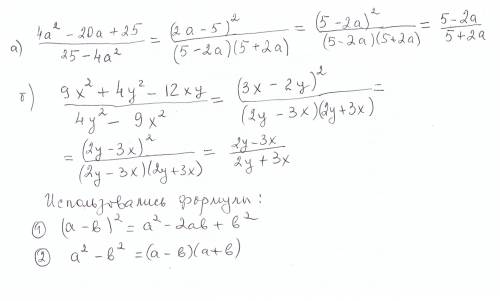 а) (4a² - 20a + 25)/(25 - 4a²) = (2a - 5)²/((5 - 2a)(5 + 2a)) = (5 - 2a)²/((5 - 2a)(5 + 2a)) = (5 - 2a)/(5 + 2a)
б) (9x² + 4y² - 12xy)/(4y² - 9x²) = (3x - 2y)²/((2y - 3x)(2y + 3x)) =
= (2y - 3x)²/((2y - 3x)(2y + 3x)) = (2y - 3x)/(2y + 3x)
Использовались формулы:
① (a - в)² = a² - 2aв + в²
② a² - в² = (a - в)(a + в)